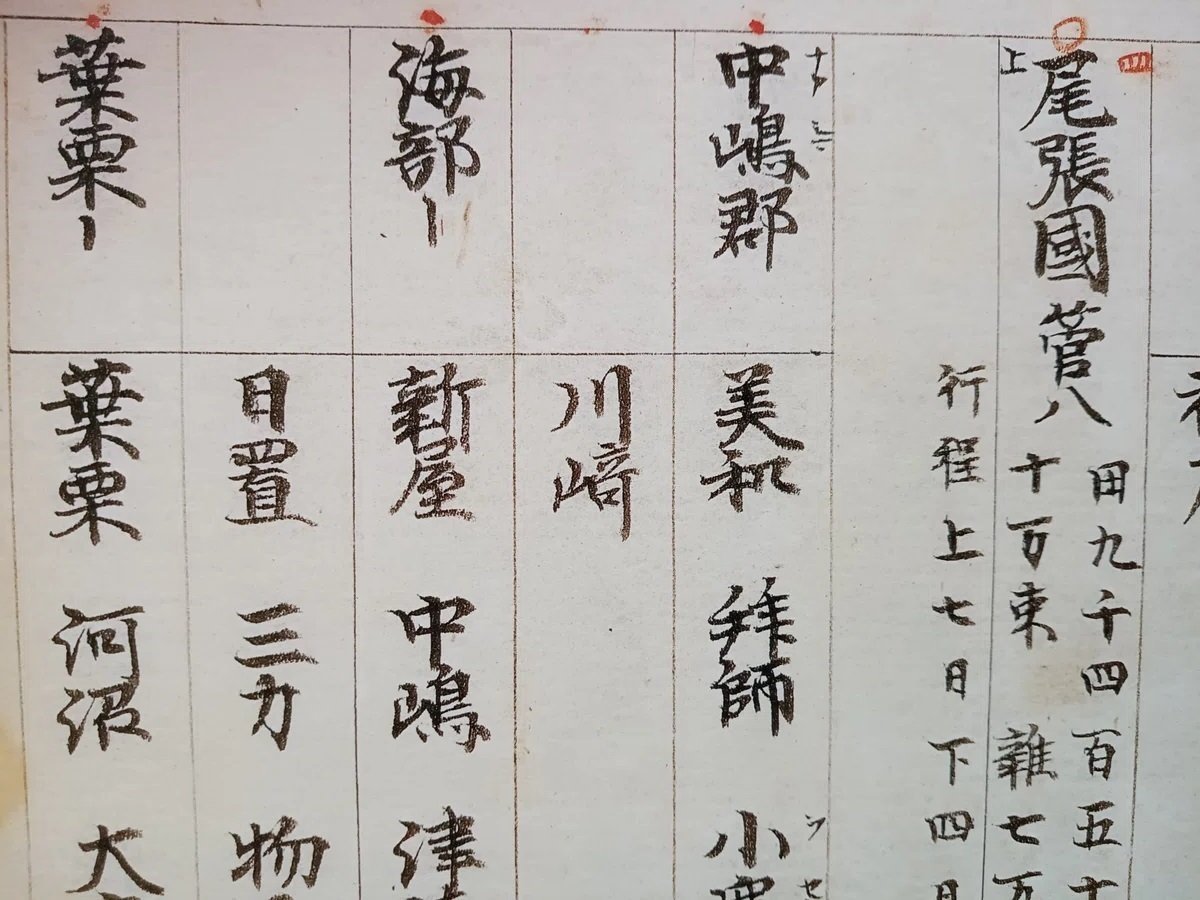 四
上尾張國管八
田九千四百五十
十万束 雜七万
行程上七日下四日
ナカシマ
中嶋郡 美和 拜師 小
川﨑
海部〡 新屋 中嶋 津
日置 三刀 物
葉栗〡 葉栗 河沼 大